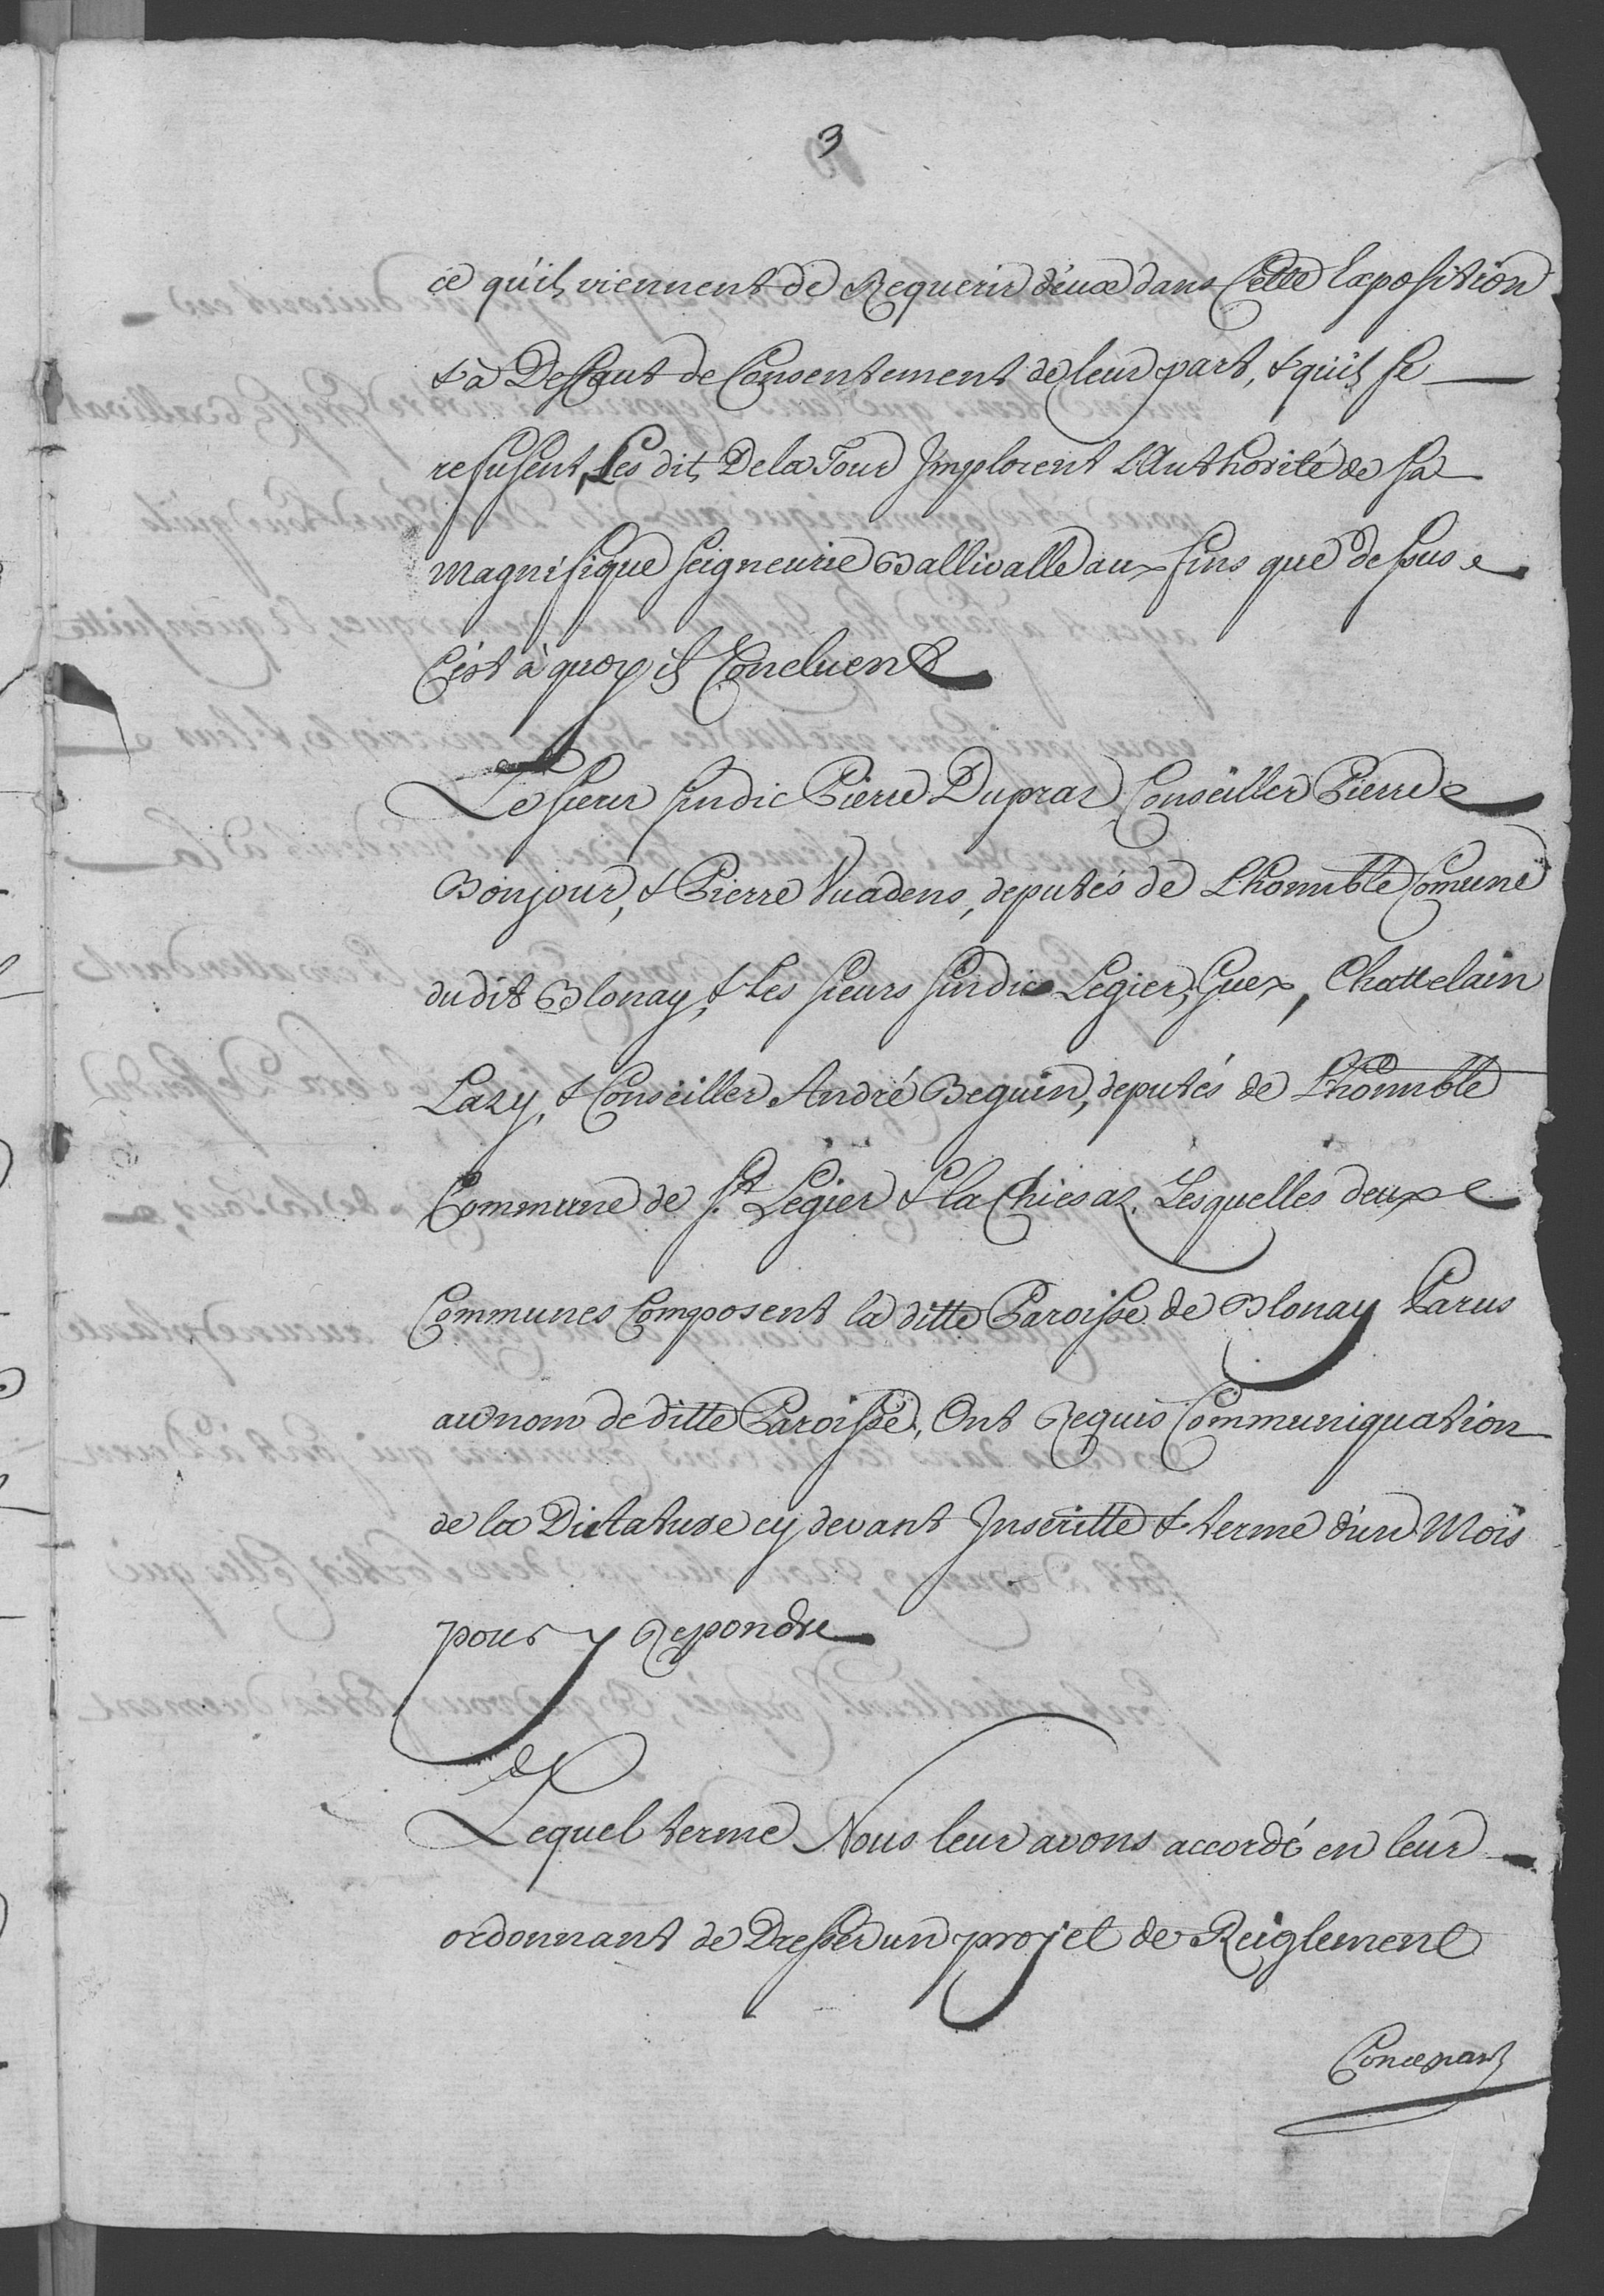 3
ce qu'ils viennent de Requerir d'eux dans Cette Exposition
& à Deffaut de Consentement de leur part, & qu'ils se
refusent, Les dits De la Tour Jmplorent L'Authorité de sa
Magnifique seigneurie Ballivalle aux fins que dessus
C'est à quoy ils Concluent
Le sieur sindic Pierre Dupraz Conseiller Pierre
Bonjour, & Pierre Vuadens, deputés de L'honnble Comune
du dit Blonay, & Les sieurs sindic Legier, Guex, Chattelain
Lazy, & Conseiller André Beguin, deputés de L'honnble
Commune de St Legier & la Chiesaz, Lesquelles deux
Communes Composent la ditte Paroisse de Blonay Parus
au nom de ditte Paroisse, Ont Requis Communiquation
de la Dictature cy devant Jnseritte & terme d'un Mois
pour y Repondre
Lequel terme Nous leur avons accordé en leur
ordonnant de Dresser un projet de Reiglement